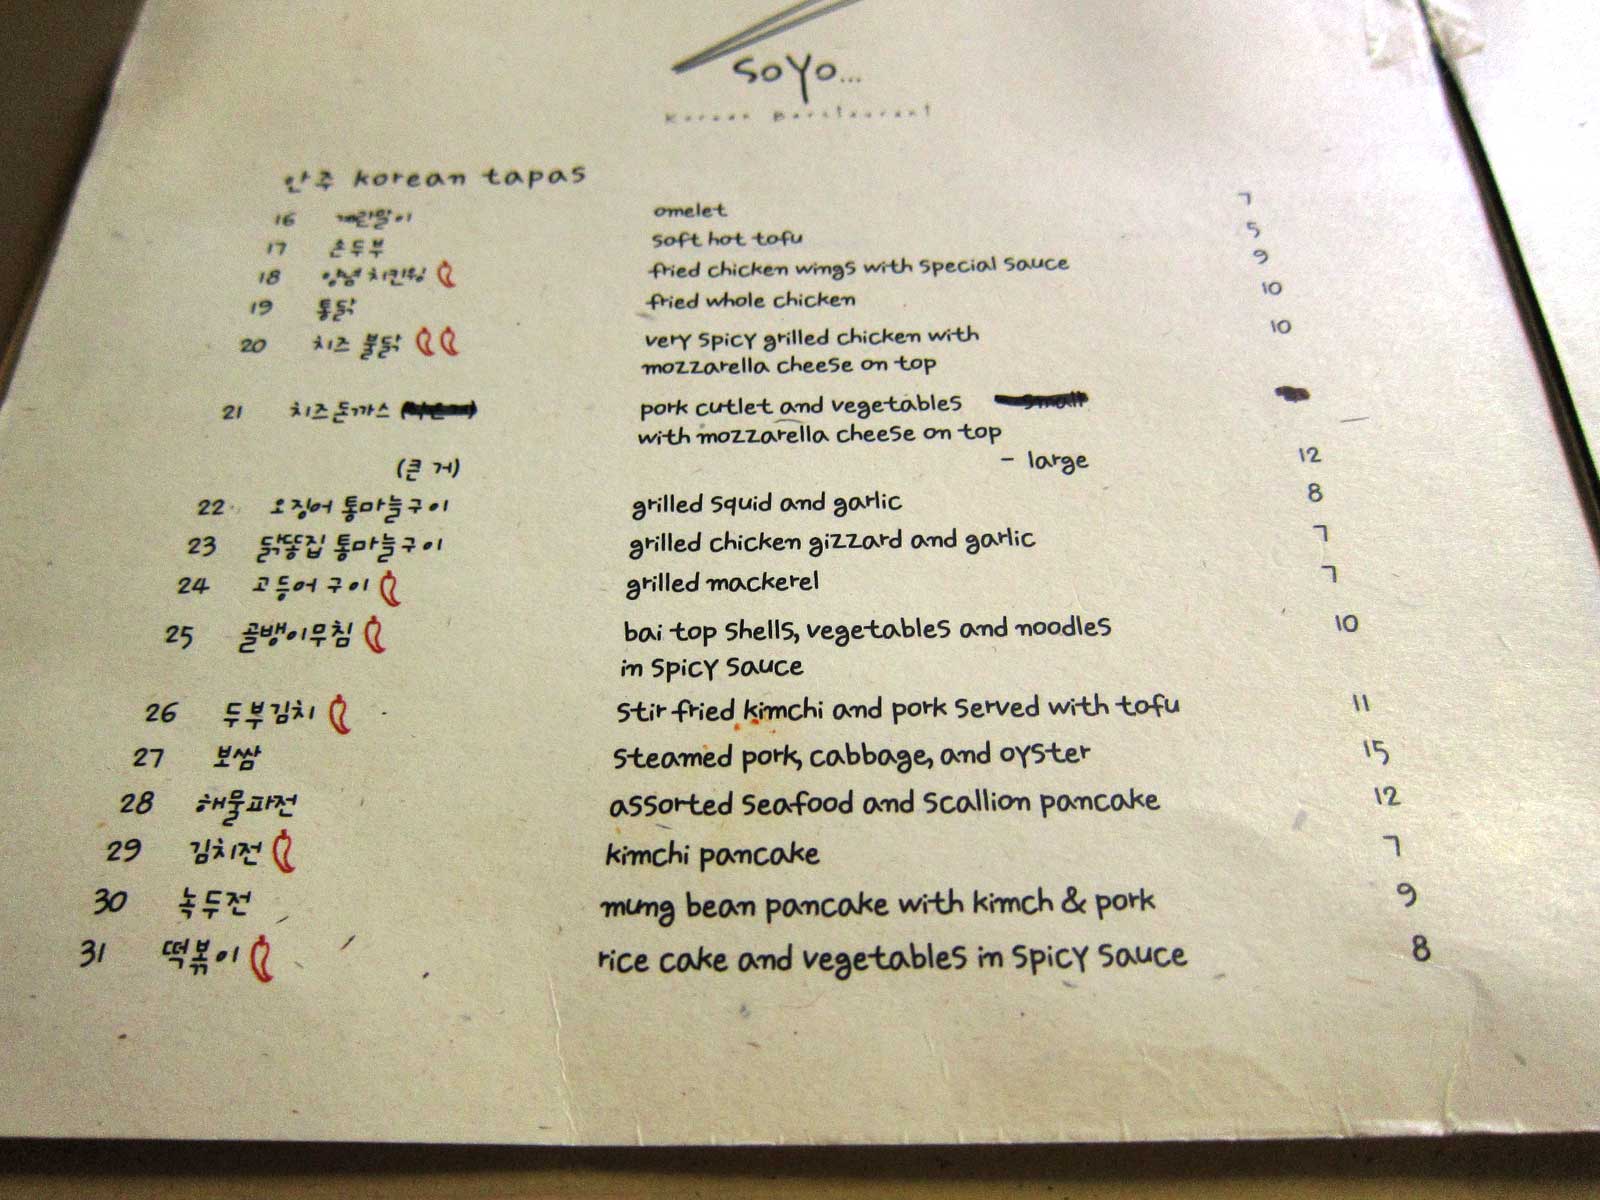 soyo...
Korean Barstaurant
안주 korean tapas
16 계란말이 omelet 7
17 손두부 soft hot tofu 5
18 양념 치킨윙 fried chicken wings with special sauce 9
19 통닭 fried whole chicken 10
20 치즈 불닭 very spicy grilled chicken with 10
mozzarella cheese on top
21 치즈돈까스 pork cutlet and vegetables small
with mozzarella cheese on top
(큰 거) - large 12
22 오징어 통마늘구이 grilled squid and garlic 8
23 닭똥집 통마늘구이 grilled chicken gizzard and garlic 7
24 고등어 구이 grilled mackerel 7
25 골뱅이무침 bai top shells, vegetables and noodles 10
in spicy sauce
26 두부김치 stir fried kimchi and pork served with tofu 11
27 보쌈 steamed pork, cabbage, and oyster 15
28 해물파전 assorted seafood and scallion pancake 12
29 김치전 kimchi pancake 7
30 녹두전 mung bean pancake with kimch & pork 9
31 떡볶이 rice cake and vegetables in spicy sauce 8